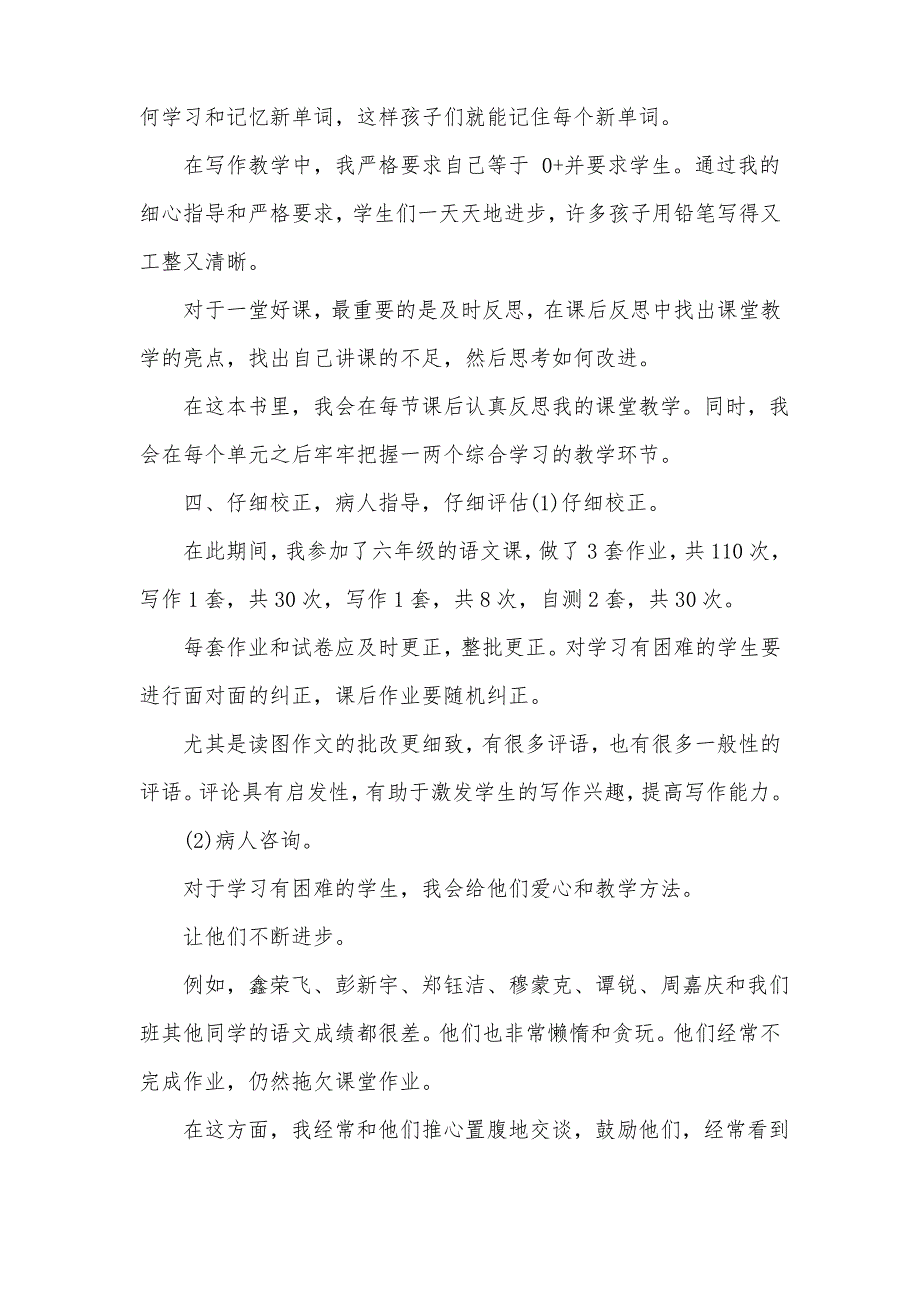 何学习和记忆新单词，这样孩子们就能记住每个新单词。
在写作教学中，我严格要求自己等于 0+并要求学生。通过我的
细心指导和严格要求，学生们一天天地进步，许多孩子用铅笔写得又
工整又清晰。
对于一堂好课，最重要的是及时反思，在课后反思中找出课堂教
学的亮点，找出自己讲课的不足，然后思考如何改进。
在这本书里，我会在每节课后认真反思我的课堂教学。同时，我
会在每个单元之后牢牢把握一两个综合学习的教学环节。
四、仔细校正，病人指导，仔细评估(1)仔细校正。
在此期间，我参加了六年级的语文课，做了3套作业，共110次，
写作1套，共30次，写作1套，共8次，自测2套，共30次。
每套作业和试卷应及时更正，整批更正。对学习有困难的学生要
进行面对面的纠正，课后作业要随机纠正。
尤其是读图作文的批改更细致，有很多评语，也有很多一般性的
评语。评论具有启发性，有助于激发学生的写作兴趣，提高写作能力。
(2)病人咨询。
对于学习有困难的学生，我会给他们爱心和教学方法。
让他们不断进步。
例如，鑫荣飞、彭新宇、郑钰洁、穆蒙克、谭锐、周嘉庆和我们
班其他同学的语文成绩都很差。他们也非常懒惰和贪玩。他们经常不
完成作业，仍然拖欠课堂作业。
在这方面，我经常和他们推心置腹地交谈，鼓励他们，经常看到